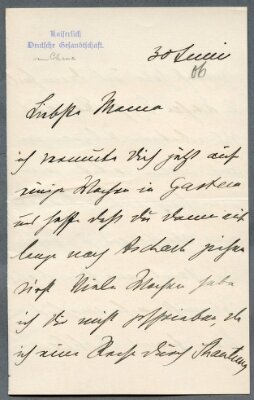 Kaiserlich
Deutsche Gesandtschaft.
in China
30 Juni
06
Liebste Mama
ich vermute Dich jetzt auf
einige Wochen in Gastein
und hoffe daß du dann auf
lange nach Aschach gehen
wirst. Viele Wochen habe
ich Dir nicht geschrieben, da
ich eine Reise durch Shantung